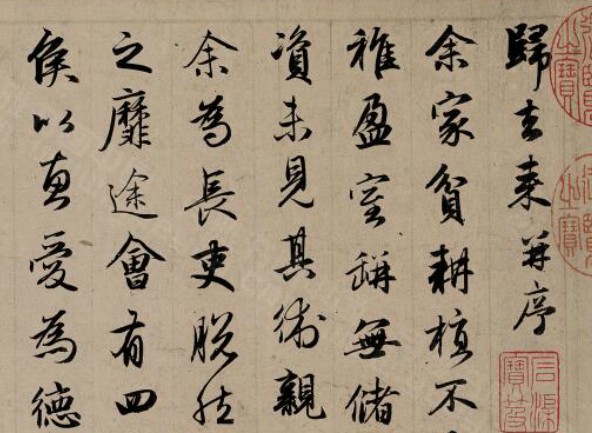 歸去來并序
余家貧耕植不
稚盈室缾無儲
資未見其術親
余為長吏脫然
之靡途會有四
侯以惠愛為德